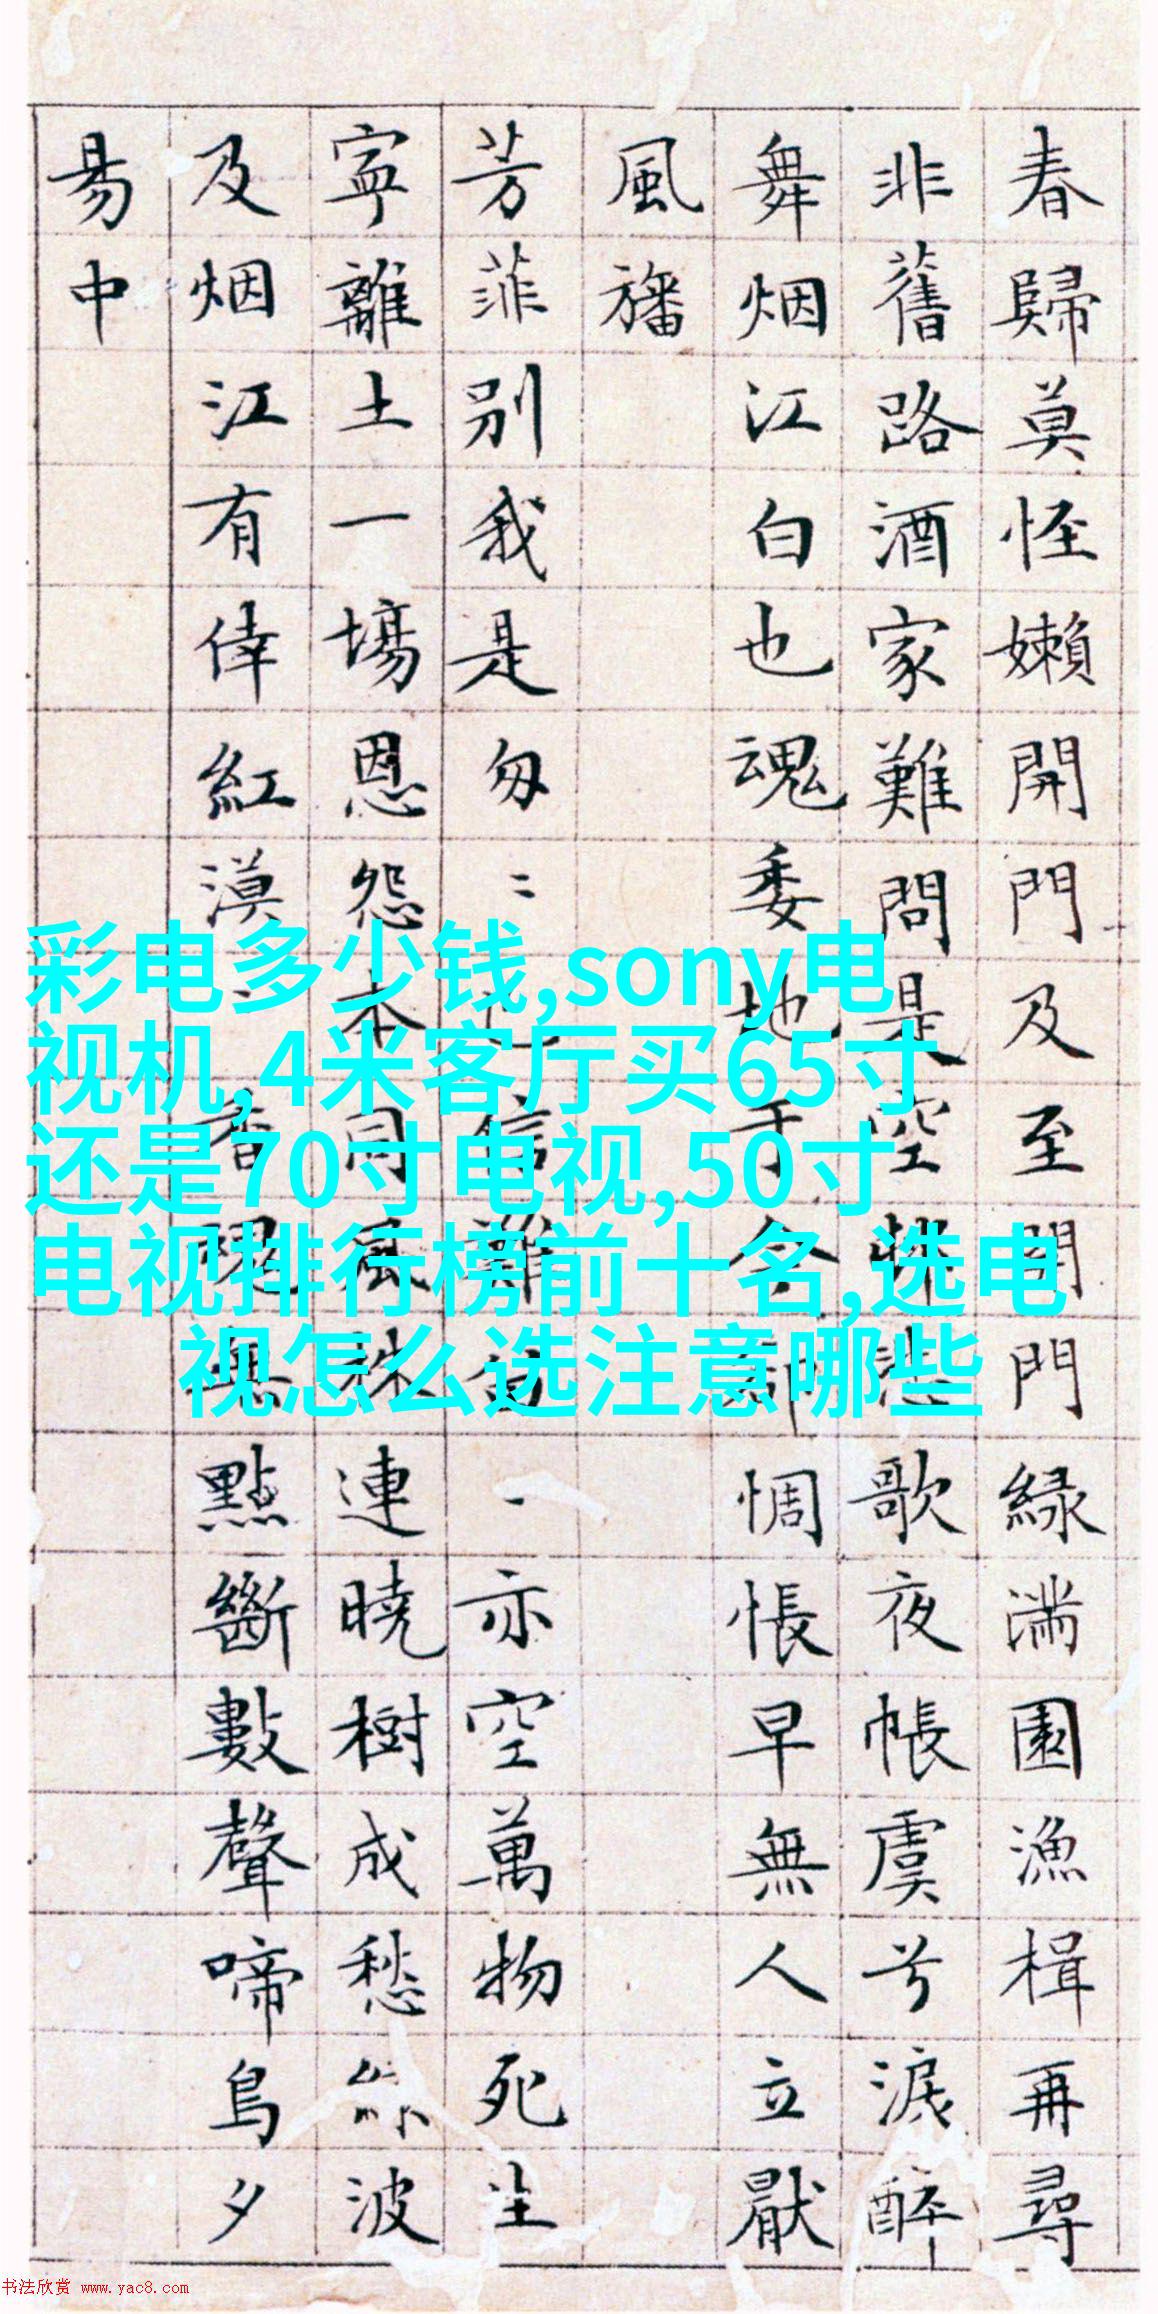 春歸莫怪嬾開門及至開門緑滿園漁楫再尋
非舊路酒家難問是空邨歌夜帳虞兮淚醉
舞烟江白也魂委地于今却惆悵早無人立厭
風旛
芳菲別我是匆〻已信難一亦空萬物死生
寧離土一場恩怨本同風株連曉樹成愁絲波
及烟江有倖紅漠〻香無點斷數聲啼鳥夕
易中
彩电多少钱,sony电
视机,4米客厅买65寸
还是70寸电视,50寸
电视排行榜前十名,选电
视怎么选注意哪些
书法欣赏 www.yac8.com